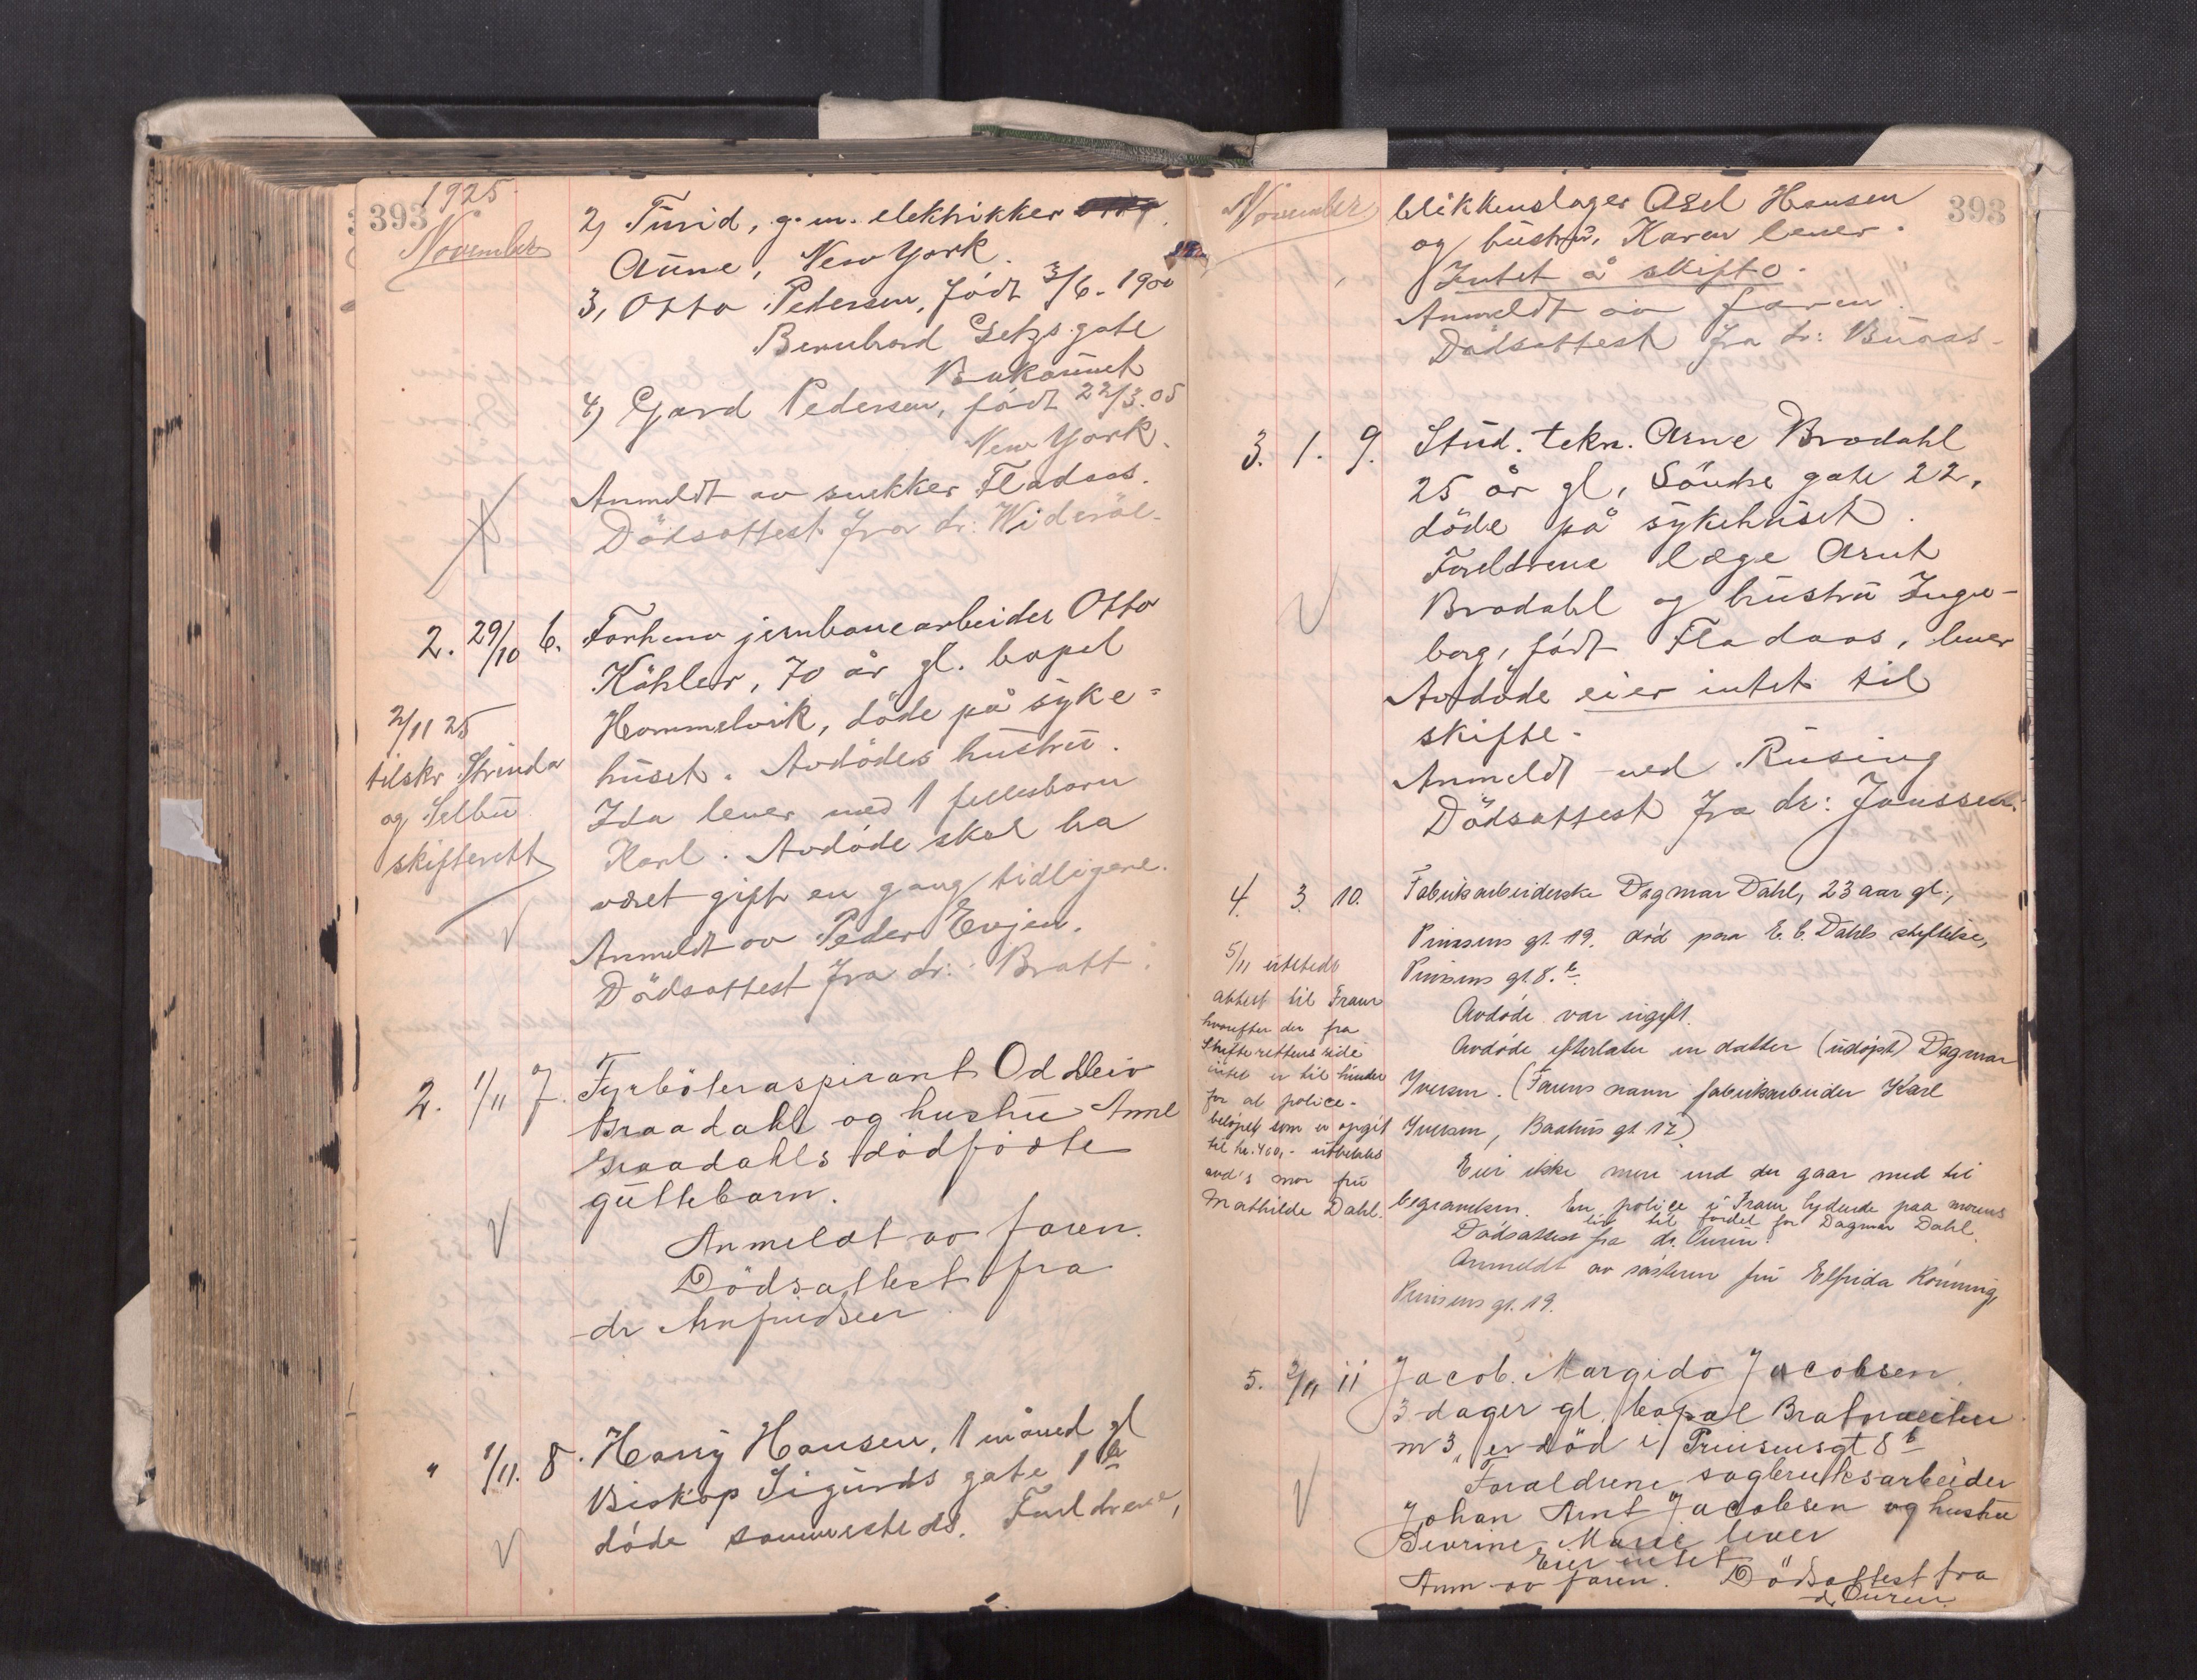 393
1925
November
2) Turid, g. m. elektrikker
Aune, New York.
3, Otto Pedersen, født 3/6. 1900
Bernhard Getzs gate
Bakaunet
4) Gard Pedersen, født 22/3.05
New York.
Anmeldt av snekker Fladaas.
Dödsattest fra dr: Wideröe.
2. 29/10 6. Forhenv jernbanearbeider Otto
Köhler, 70 år gl. bopel
Hommelvik, döde på syke=
huset. Avdödes hustru.
Ida lever med 1 fellesbarn
Karl. Avdöde skal ha
været gift en gang tidligere.
Anmeldt av Peder Evjen.
Dödsattest fra dr: Bratt.
2/11 25
tilskr Strinda
og Selbu
skifterett
2. 1/11 7. Fyrböteraspirant Oddleiv
Graadahl og hustru Anne
Graadahls dödfödte
guttebarn.
Anmeldt av faren.
Dödsattest fra
dr Arnfindsen
" 1/11. 8. Harry Hansen, 1 måned gl
Biskop Sigurds gate 1 a
döde sammesteds. Foreldrene,
November
393
blikkenslager Axel Hansen
og hustru, Karen lever.
Intet å skifte.
Anmeldt av faren.
Dødsattest fra dr: Buaas.
3. 1. 9. Stud. tekn. Arne Brodahl
25 år gl, Söndre gate 22,
döde på sykehuset.
Foreldrene læge Arnt
Brodahl og hustru Inge-
borg, født Fladaas, lever
Avdøde eier intet til
skifte.
Anmeldt ved Rusing
Dödsattest fra dr: Janssen.
4. 3. 10. Fabrikarbeiderske Dagmar Dahl, 23 aar gl.,
Prinsens gt. 19. död paa E. C. Dahls stiftelse,
Prinsens gt. 8. b.
Avdöde var ugift.
Avdöde efterlater en datter (udöpt) Dagmar
Iversen. (Farens navn fabrikarbeider Karl
Iversen, Baathus gt 12)
Eier ikke mere end der gaar med til
begravelsen. En police i Fram lydende paa morens
liv til fordel for Dagmar Dahl.
Dödsattest fra dr. Ouren.
Anmeldt av søsteren fru Elfrida Rönning,
Prinsens gt. 19.
5/11 utstedt
attest til Fram
hvorefter der fra
Skifterettens side
intet er til hinder
for at police-
belöpet som er opgit
til kr. 400,- utbetales
avd's mor fru
Mathilde Dahl.
5. 2/11 11 Jacob Margido Jacobsen
3 dager gl. bopæl Bratörveiten
nr 3, er död i Prinsensgt 8 b
Foraldrene sagbruksarbeider
Johan Arnt Jacobsen og hustru
Sevrine Marie lever
Eier intet
Anm av faren. Dödsattest fra
dr Ouren.